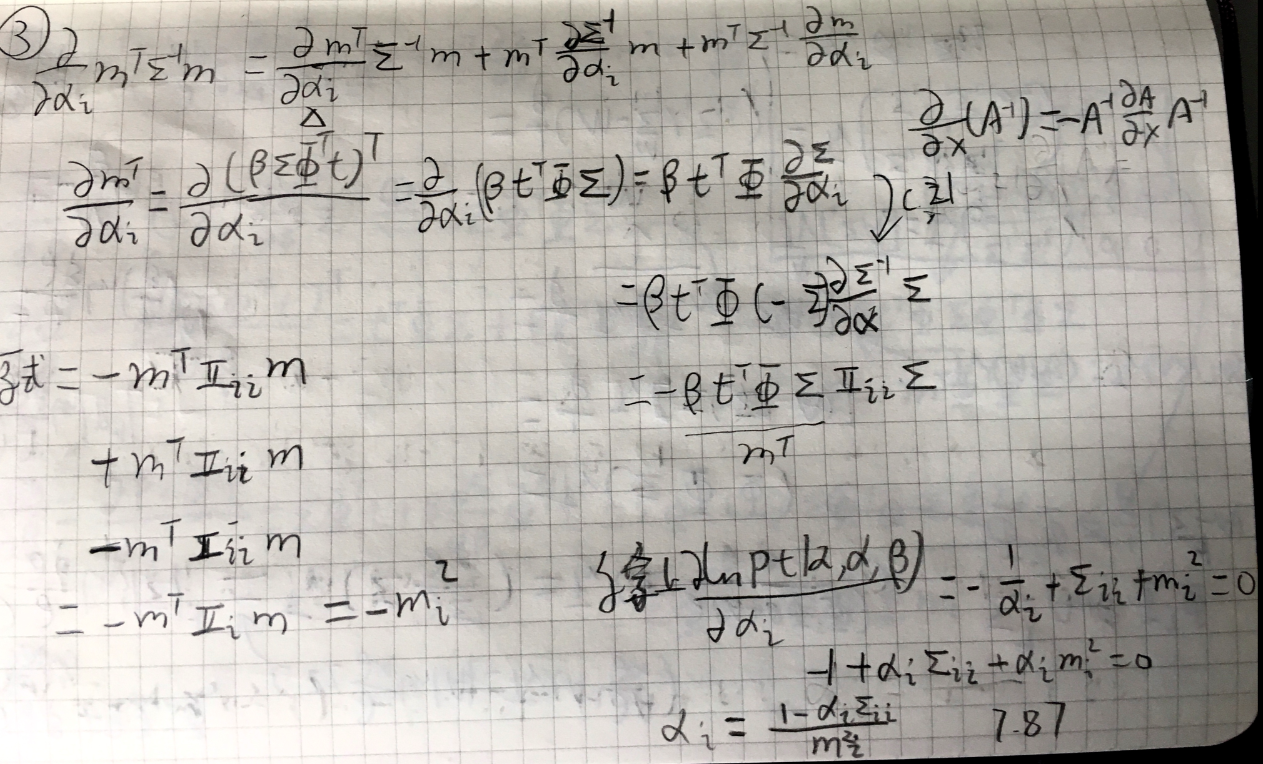 ③ ∂/∂αᵢ mᵀΣ⁻¹m = ∂mᵀ/∂αᵢ Σ⁻¹m + mᵀ ∂Σ⁻¹/∂αᵢ m + mᵀΣ⁻¹ ∂m/∂αᵢ
∂/∂x (A⁻¹) = -A⁻¹ ∂A/∂x A⁻¹
∂mᵀ/∂αᵢ = ∂(βΣΦᵀt)ᵀ/∂αᵢ = ∂/∂αᵢ (βtᵀΦΣ) = βtᵀΦ ∂Σ/∂αᵢ
= βtᵀΦ (- Σ ∂Σ⁻¹/∂α Σ
= -βtᵀΦΣ Iᵢᵢ Σ
mᵀ
= -mᵀIᵢᵢm
+mᵀIᵢᵢm
-mᵀIᵢᵢm
= -mᵀIᵢm = -mᵢ²
∂ln p t|α,α,β)/∂αᵢ = -1/αᵢ + Σᵢᵢ + mᵢ² = 0
-1 + αᵢΣᵢᵢ + αᵢmᵢ² = 0
αᵢ = 1-αᵢΣᵢᵢ/mᵢ² 7.87